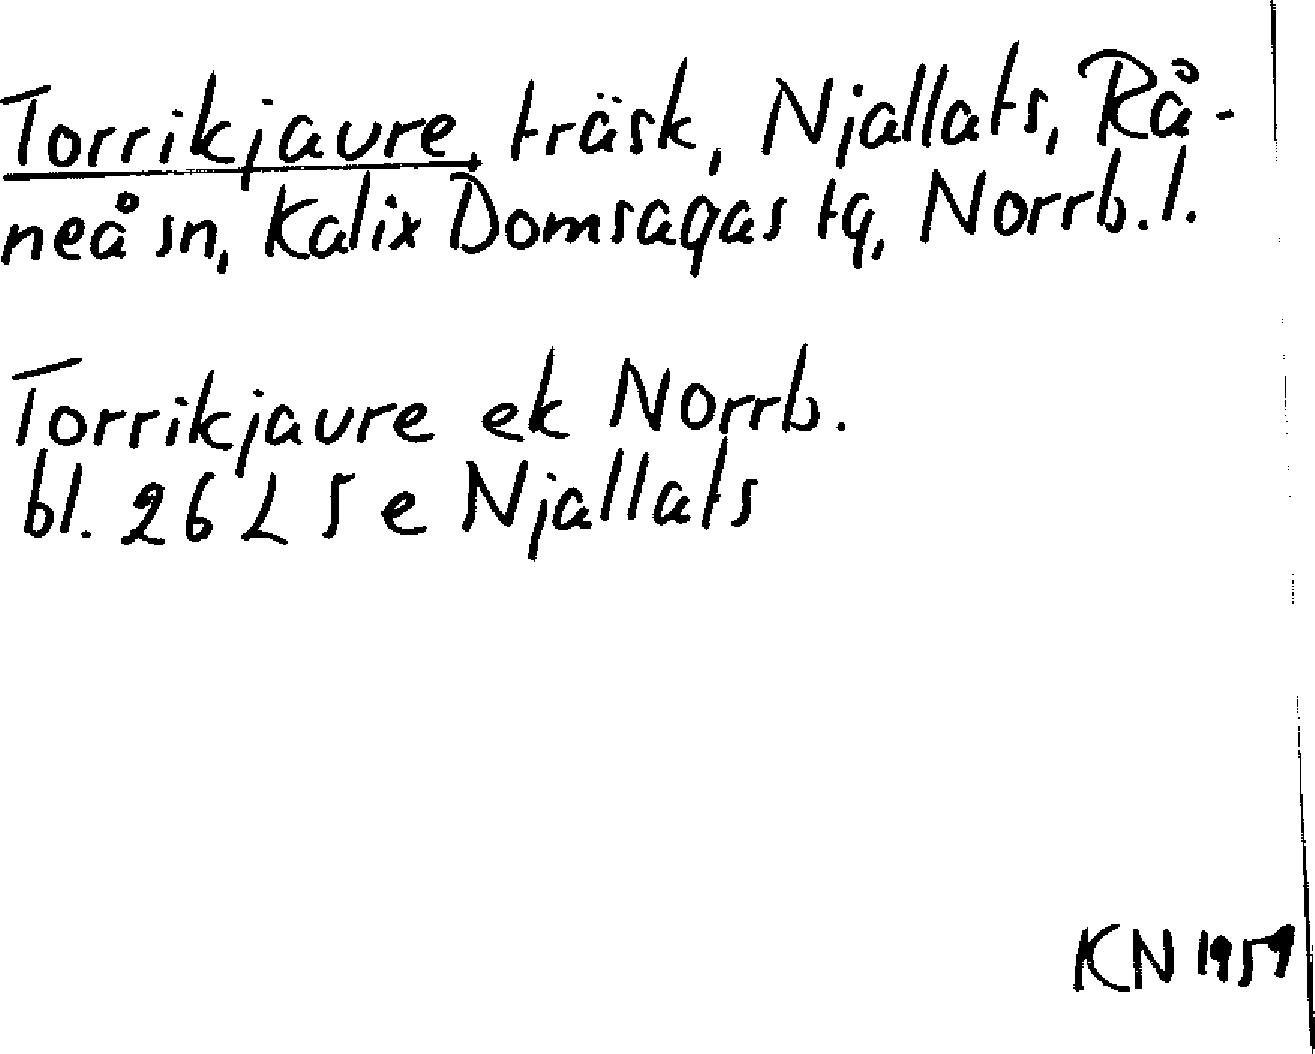 Torrikjaure, träsk, Njallats, Rå-
neå sn, Kalix Domsagas tg, Norrb. l.
Torrikjaure ek Norrb.
bl. 26 L 5 e Njallats
KN 1959